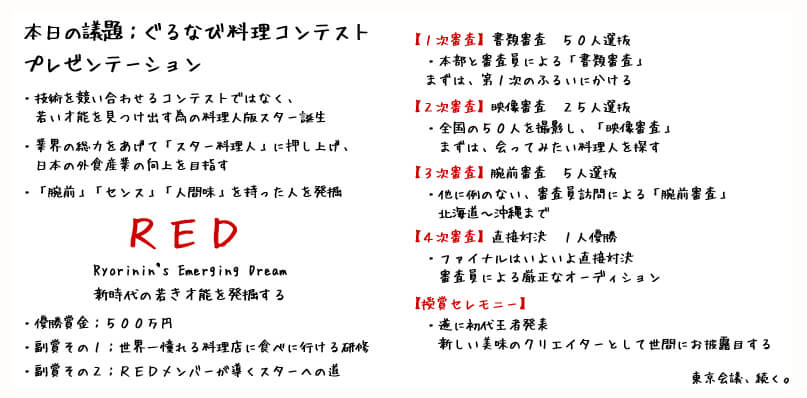 本日の議題；ぐるなび料理コンテスト
プレゼンテーション
・技術を競い合わせるコンテストではなく、
若い才能を見つけ出す為の料理人版スター誕生
・業界の総力をあげて「スター料理人」に押し上げ、
日本の外食産業の向上を目指す
・「腕前」「センス」「人間味」を持った人を発掘
RED
Ryorinin's Emerging Dream
新時代の若き才能を発掘する
・優勝賞金；５００万円
・副賞その１；世界一憧れる料理店に食べに行ける研修
・副賞その２；ＲＥＤメンバーが導くスターへの道
【１次審査】書類審査　５０人選抜
・本部と審査員による「書類審査」
まずは、第１次のふるいにかける
【２次審査】映像審査　２５人選抜
・全国の５０人を撮影し、「映像審査」
まずは、会ってみたい料理人を探す
【３次審査】腕前審査　５人選抜
・他に例のない、審査員訪問による「腕前審査」
北海道〜沖縄まで
【４次審査】直接対決　１人優勝
・ファイナルはいよいよ直接対決
審査員による厳正なオーディション
【授賞セレモニー】
・遂に初代王者発表
新しい美味のクリエイターとして世間にお披露目する
東京会議、続く。